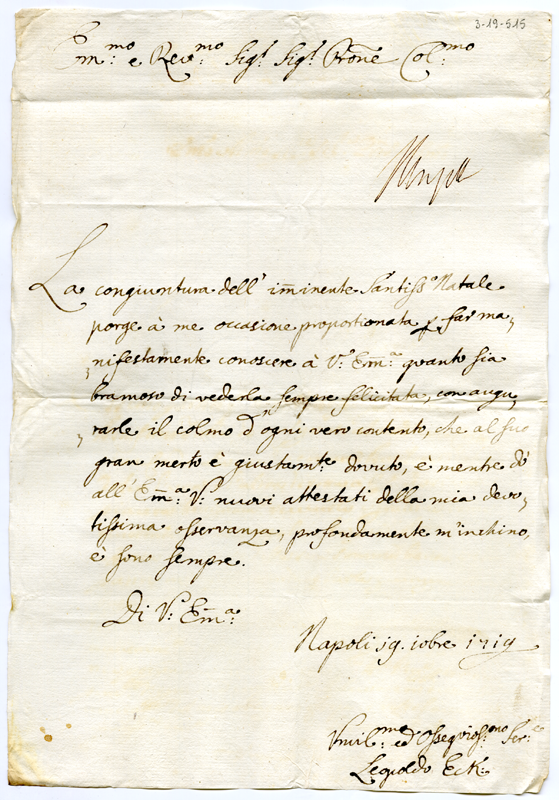 3-19-515
Em:mo e Rev:mo Sig:r Sig:r Prone Col:mo
La congiuntura dell' im̅inente Santiss:o Natale
porge à me occasione proportionata p far ma,
nifestamente conoscere à V:a Em̅:a quanto sia
bramoso di vederla sempre felicitata, con augu,
rarle il colmo d'ogni vero contento, che al suo
gran merto è giustam:te dovuto, è mentre dò
all' Em̅:a V:a nuovi attestati della mia devo,
tissima osservanza, profondamente m'inchino,
è sono sempre.
Di V:a Em̅:a
Napoli 19. xbre 1719
Umil:mo ed Ossequios:mo Ser:e
Leopoldo Eck: